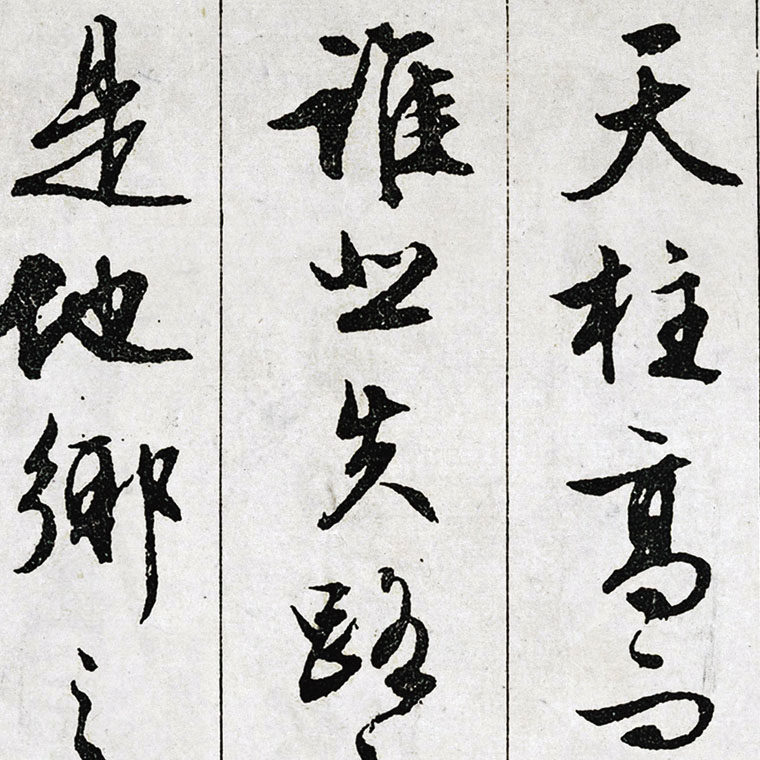 天柱高而
誰悲失路
是他鄉之